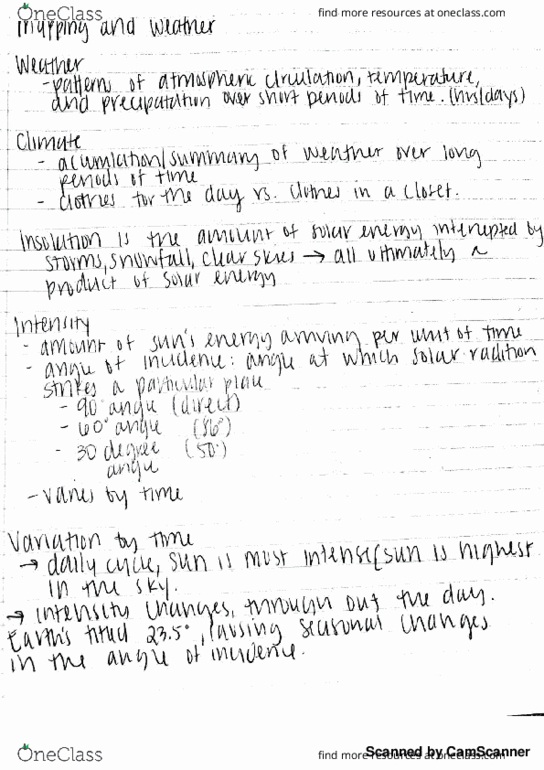 OneClass
find more resources at oneclass.com
mapping and weather
Weather
- patterns of atmospheric circulation, temperature,
and precipatation over short periods of time. (hrs/days)
Climate
- acumlation/summary of weather over long
periods of time
- clothes for the day vs. clothes in a closet.
Insolation is the amount of solar energy intercepted by
storms, snowfall, clear skies → all ultimately a
product of solar energy
Intensity
- amount of sun's energy arriving per unit of time
- angle of incidence: angle at which solar radition
strikes a particular plane
- 90° angle (direct)
- 60° angle (86°)
- 30 degree (50°)
angle
- varies by time
Variation by time
→ daily cycle, sun is most intense/sun is highest
in the sky.
→ intensity changes, through out the day.
Earth's tilted 23.5°, causing seasonal changes
in the angle of incidence.
OneClass
find more resources at oneclass.com
Scanned by CamScanner